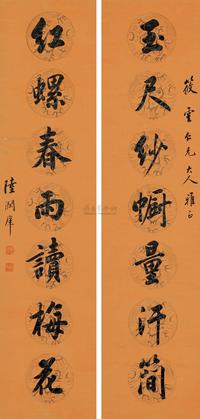 筱雲仁兄大人雅正
玉尺紗幮量汗簡
紅螺春雨讀梅花
陸潤庠